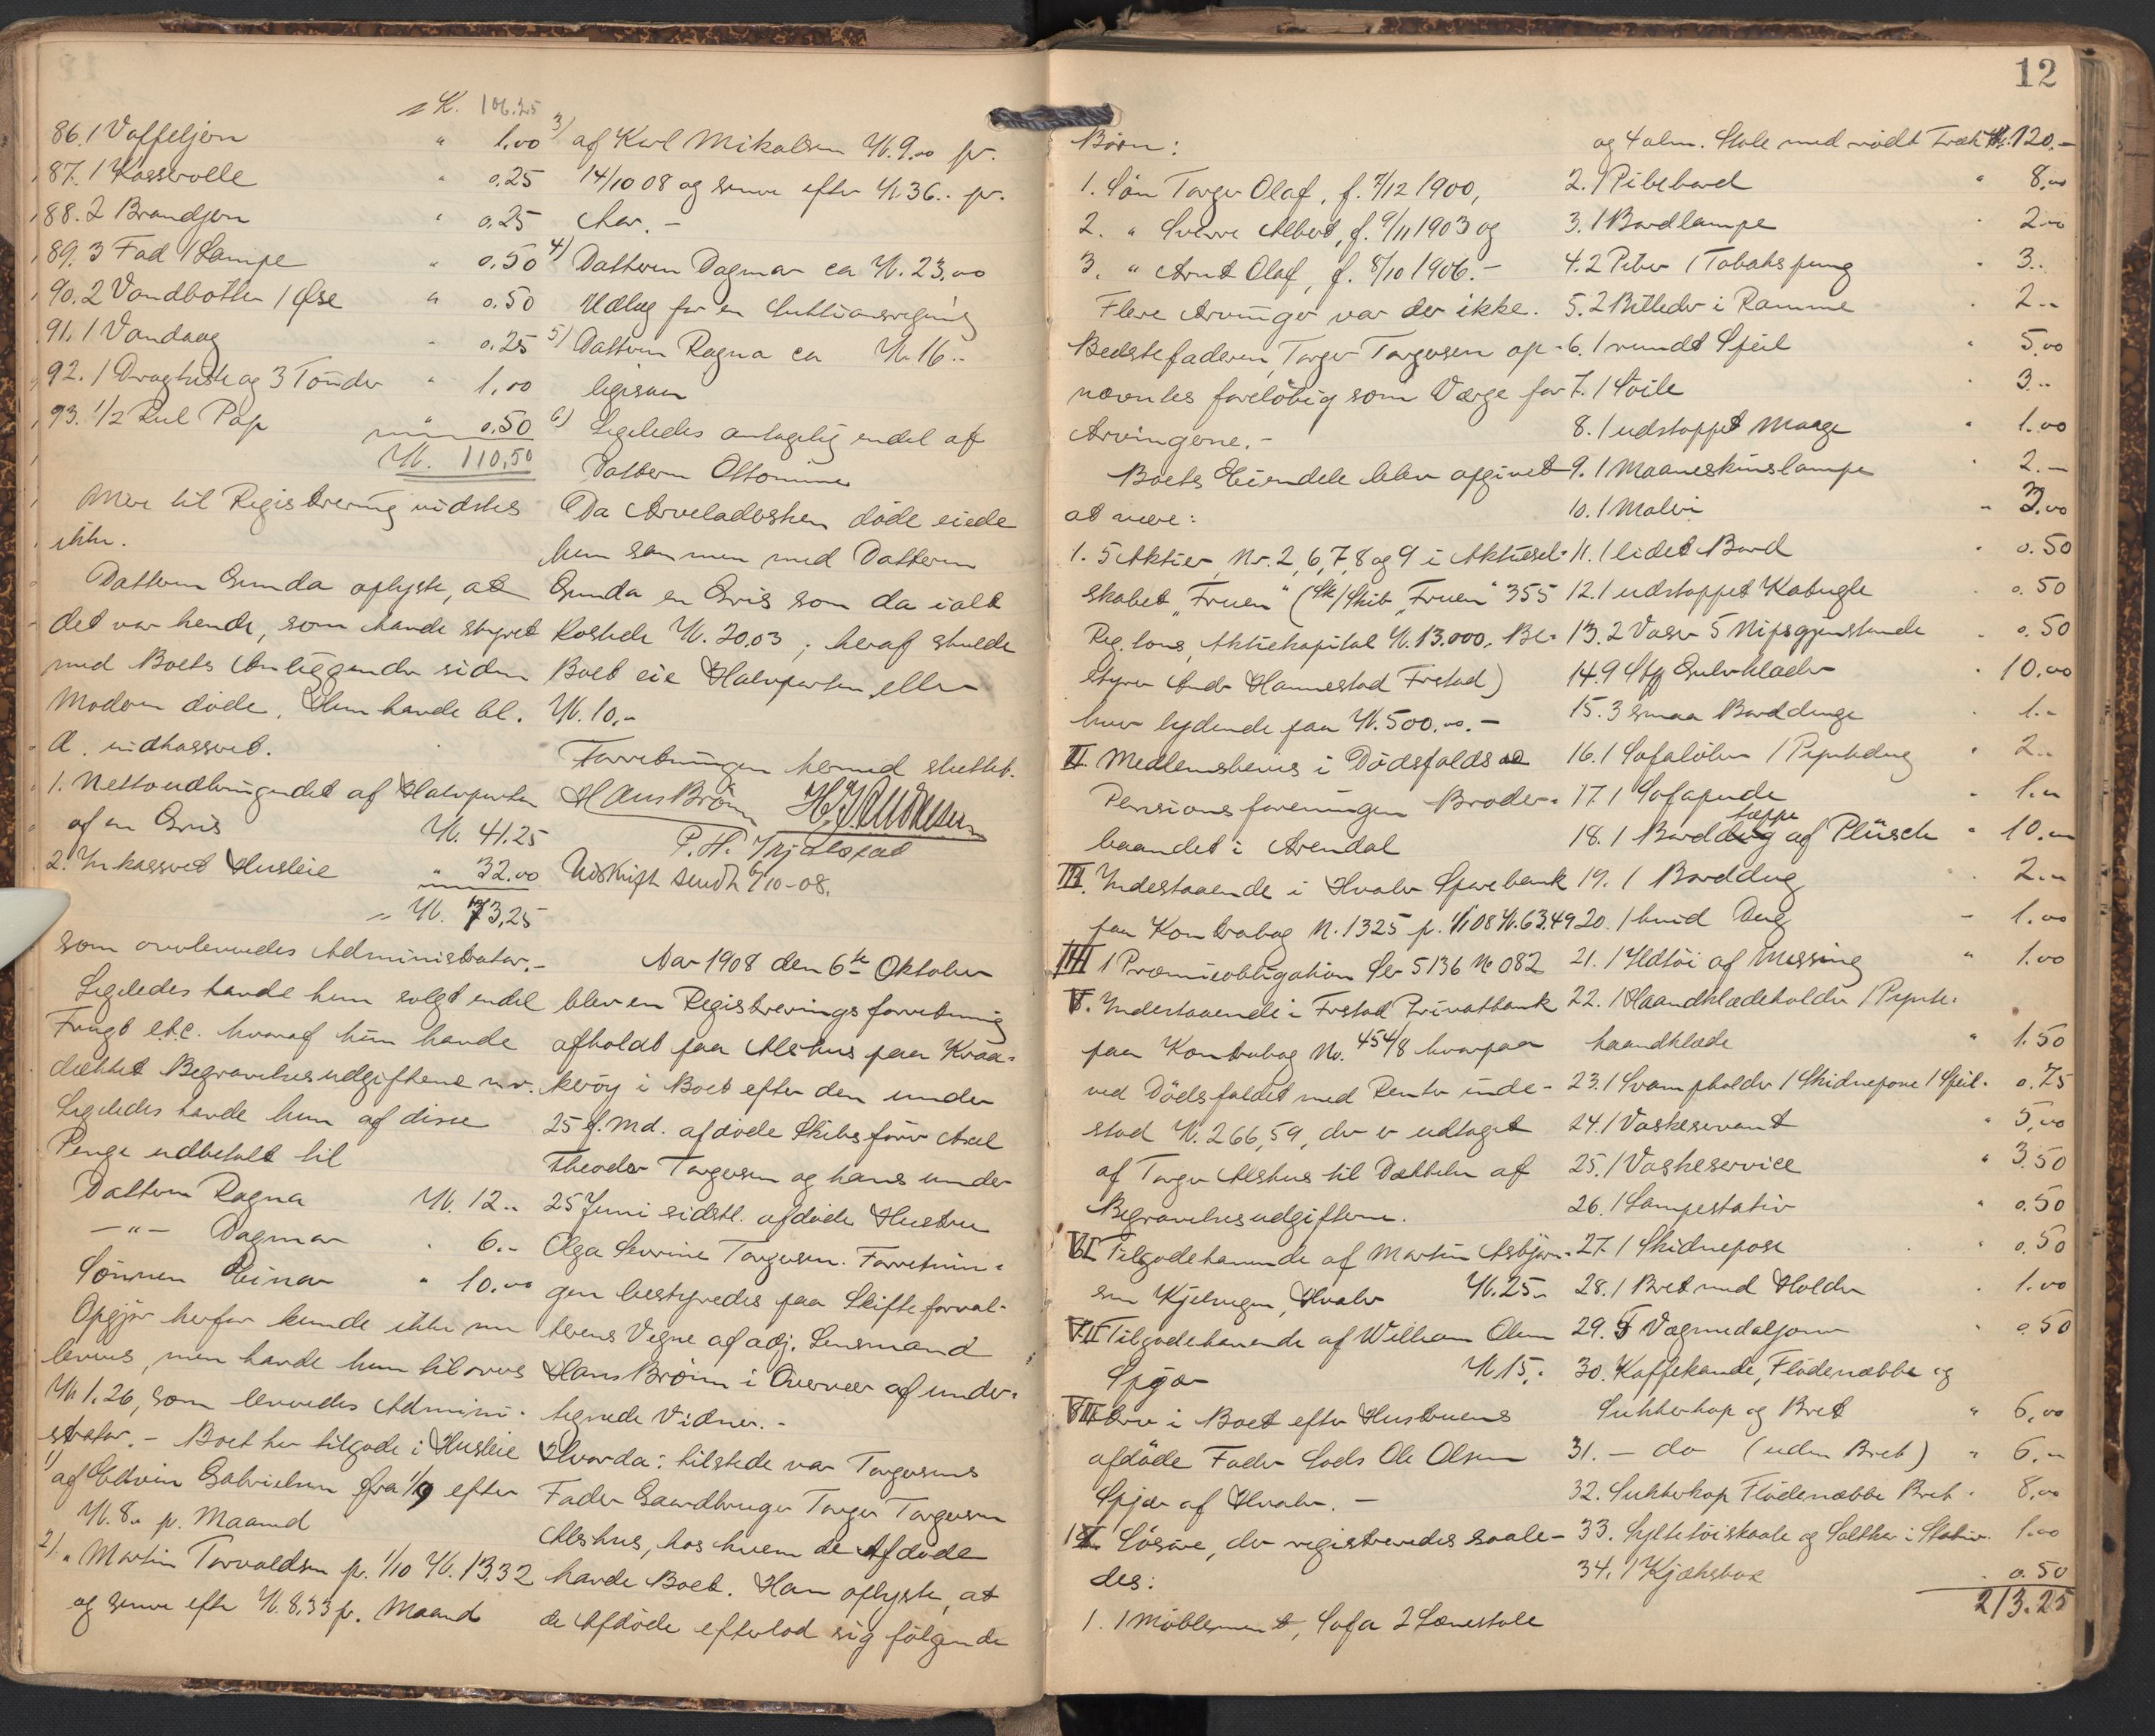 K. 106.25
86. 1 Vaffeljern " 1.00
87. 1 Kasserolle " 0.25
88. 2 Brandjern " 0.25
89. 3 Fad 1 Lampe " 0.50
90. 2 Vandbøtter 1 Øse " 0.50
91. 1 Vandaag " 0.25
92. 1 Dragkiste og 3 Tønder " 1.00
93. 1/2 Rul Pap " 0.50
Kr. 110,50
Mere til Registrering vidstes
ikke.
Datteren Gunda oplyste, at
det var hende, som havde styret
med Boets Anliggender siden
Moderen døde. Hun havde bl.
a. indkasseret.
1. Nettoudbringendet af Halvparten
af en Gris Kr. 41.25
2. Inkasseret Husleie " 32.00
Kr. 73,25
som overleveredes Administrator.-
Ligeledes havde hun solgt endel
Frugt etc. hvoraf hun havde
dækket Begravelsesudgiftene m.v.
Ligeledes havde hun af disse
Penge udbetalt til
Datteren Ragna Kr. 12..
—"— Dagmar " 6.-
Sønnen Einar " 10.00
Opgjør herfor kunde ikke nu
leveres, men havde hun tilovers
Kr 1.26, som leveredes Admini-
strator.- Boet har tilgode i Husleie
1) af Edvin Gabrielsen fra 1/9 efter
Kr. 8.. p. Maaned
2) " Martin Torvaldsen pr. 1/10 Kr. 13.32
og senere efter Kr. 8.33 pr. Maaned
3) af Karl Mikalsen Kr. 9.00 pr.
14/10 08 og senere efter Kr. 36.. pr.
Aar.-
4) Datteren Dagmar ca Kr. 23.00
Udlæg for en Auktionsregning
5) Datteren Ragna ca Kr. 16..
ligesaa
6) Ligeledes antagelig endel af
Datteren Ottomine
Da Arveladersken døde eiede
hun sammen med Datteren
Gunda en Gris som da ialt
kostede Kr. 20.03; heraf skulde
Boet eie Halvparten eller
Kr. 10.-
Forretningen hermed sluttet.
Hans Brønn
P. H.
Udskrift sendt 6/10-08.
Aar 1908 den 6te Oktober
blev en Registreringsforretning
afholdt paa Alshus paa Kraa-
kerøy i Boet efter den under
25 f. Md. afdøde Skibsfører Axel
Theodor Torgersen og hans under
25 Juni sidstl. afdøde Hustru
Olga Severine Torgersen. Forretnin-
gen bestyredes paa Skifteforval-
terens Vegne af adj. Lensmand
Hans Brønn i Overvær af under-
tegnede Vidner.-
Hvorda: tilstede var Torgersens
Fader Gaardbruger Torger Torgersen
Alshus, hos hvem de Afdøde
havde Boet. Han oplyste, at
de Afdøde efterlod sig følgende
12
Børn:
1. Søn Torger Olaf, f. 7/12 1900,
2. " Sverre Albert, f. 9/11 1903 og
3. " Arnt Olaf, f. 8/10 1906.-
Flere Arvinger var der ikke.
Bedstefaderen Torger Torgersen op-
nævntes foreløbig som Værge for
Arvingerne.-
Boets Eiendele blev opgivet
at være:
1. 5 Aktier, Nr. 2, 6, 7, 8 og 9 i Aktiesel-
skabet "Fruen" (Sk/Skib "Fruen" 355
Reg. tons, Aktiekapital Kr. 13.000. Be-
styrer Andr Hannestad Frstad)
hver lydende paa Kr. 500.00.-
II. Medlemsbevis i Dødsfalds og
Pensionsforeningen Broder-
baandet i Arendal
III. Indestaaende i Hvaler Sparebank
paa Kontrabog N. 1325 p. 1/1 08 Kr. 63.49
IIII 1 Præmieobligation Ser 5136 No 082
V. Indestaaende i Frstad Privatbank
paa Kontrabog No. 454/8 hvorpaa
ved Dødsfaldet med Renter inde-
stod Kr. 266,59, der er udtaget
af Torger Alshus til Dækkelse af
Begravelsesudgifterne.
VI. Tilgodehavende af Martin Asbjørn-
sen Kjelvigen, Hvaler Kr. 25..
VII Tilgodehavende af William Olsen
Spjær Kr 15.-
VIII Arv i Boet efter Hustruens
afdøde Fader Lods Ole Olsen
Spjær af Hvaler.-
IX. Løsøre, der registreredes saale-
des:
1. 1 Møblement, Sofa 2 Lænestole
og 4 alm. Stole med rødt Træk Kr. 120.-
2. 1 Pibebord " 8.00
3. 1 Bordlampe " 2.00
4. 2 Piber 1 Tobakspung " 3..
5. 2 Billeder i Ramme " 2..
6. 1 rundt Speil " 5.00
7. 1 Søile " 3..
8. 1 udstoppet Maage " 1.00
9. 1 Maaneskinslampe " 2.-
10. 1 Maleri " 3.00
11. 1 lidet Bord " 0.50
12. 1 udstoppet Katugle " 0.50
13. 2 Vaser 5 Nipsgjenstande " 0.50
14. 9 Stk Gulvklæder " 10.00
15. 3 smaa Bordduge " 1.-
16. 1 Sofaløber 1 Pyntedug " 2..
17. 1 Sofapude " 1.00
18. 1 Bordteppe af Plüsch " 10.00
19. 1 Borddug " 2..
20. 1 hvid Dug " 1.00
21. 1 Ildtøi af Messing " 1.00
22. 1 Haandklædeholder 1 Pynte-
haandklæde " 1.50
23. 1 Svampholder 1 Skidnepose 1 Speil. 0.75
24. 1 Vaskeservant " 5.00
25. 1 Vaskeservice " 3.50
26. 1 Lampestativ " 0.50
27. 1 Skidnepose " 0.50
28. 1 Bret med Holder " 1.00
29. 5 Vægmedaljoner " 0.50
30. Kaffekande, Flødenæbbe og
Sukkerkop og Bret " 6.00
31. — do (uden Bret) " 6..
32. Sukkerkop Flødenæbbe Bret " 8.00
33. Syltetøiskaale og Saltkar i Stativ. 1.00
34. 1 Kjæksbox " 0.50
213.25